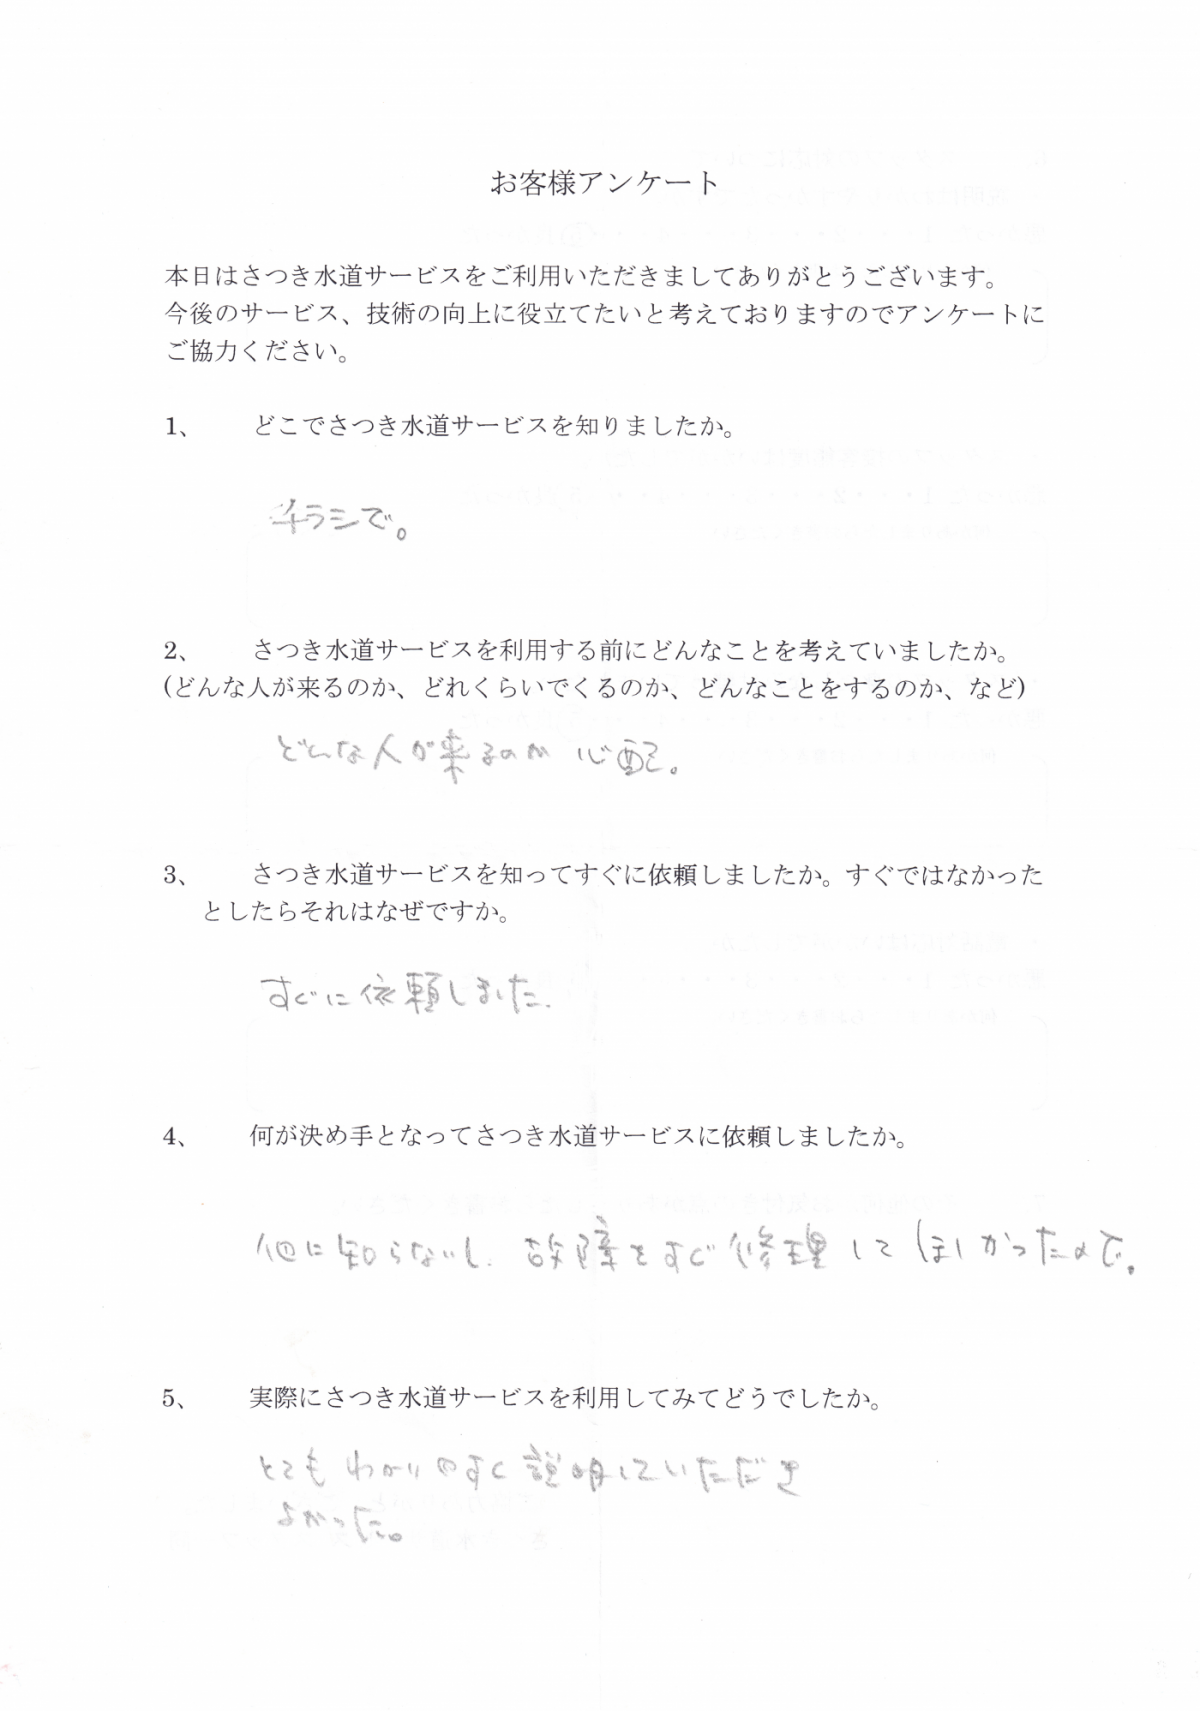 お客様アンケート
本日はさつき水道サービスをご利用いただきましてありがとうございます。
今後のサービス、技術の向上に役立てたいと考えておりますのでアンケートに
ご協力ください。
1、 どこでさつき水道サービスを知りましたか。
チラシで。
2、 さつき水道サービスを利用する前にどんなことを考えていましたか。
(どんな人が来るのか、どれくらいでくるのか、どんなことをするのか、など)
どんな人が来るのか 心配。
3、 さつき水道サービスを知ってすぐに依頼しましたか。すぐではなかった
としたらそれはなぜですか。
すぐに依頼しました.
4、 何が決め手となってさつき水道サービスに依頼しましたか。
他に知らないし、故障をすぐ修理してほしかったので。
5、 実際にさつき水道サービスを利用してみてどうでしたか。
とてもわかりやすく説明していただき
よかった。